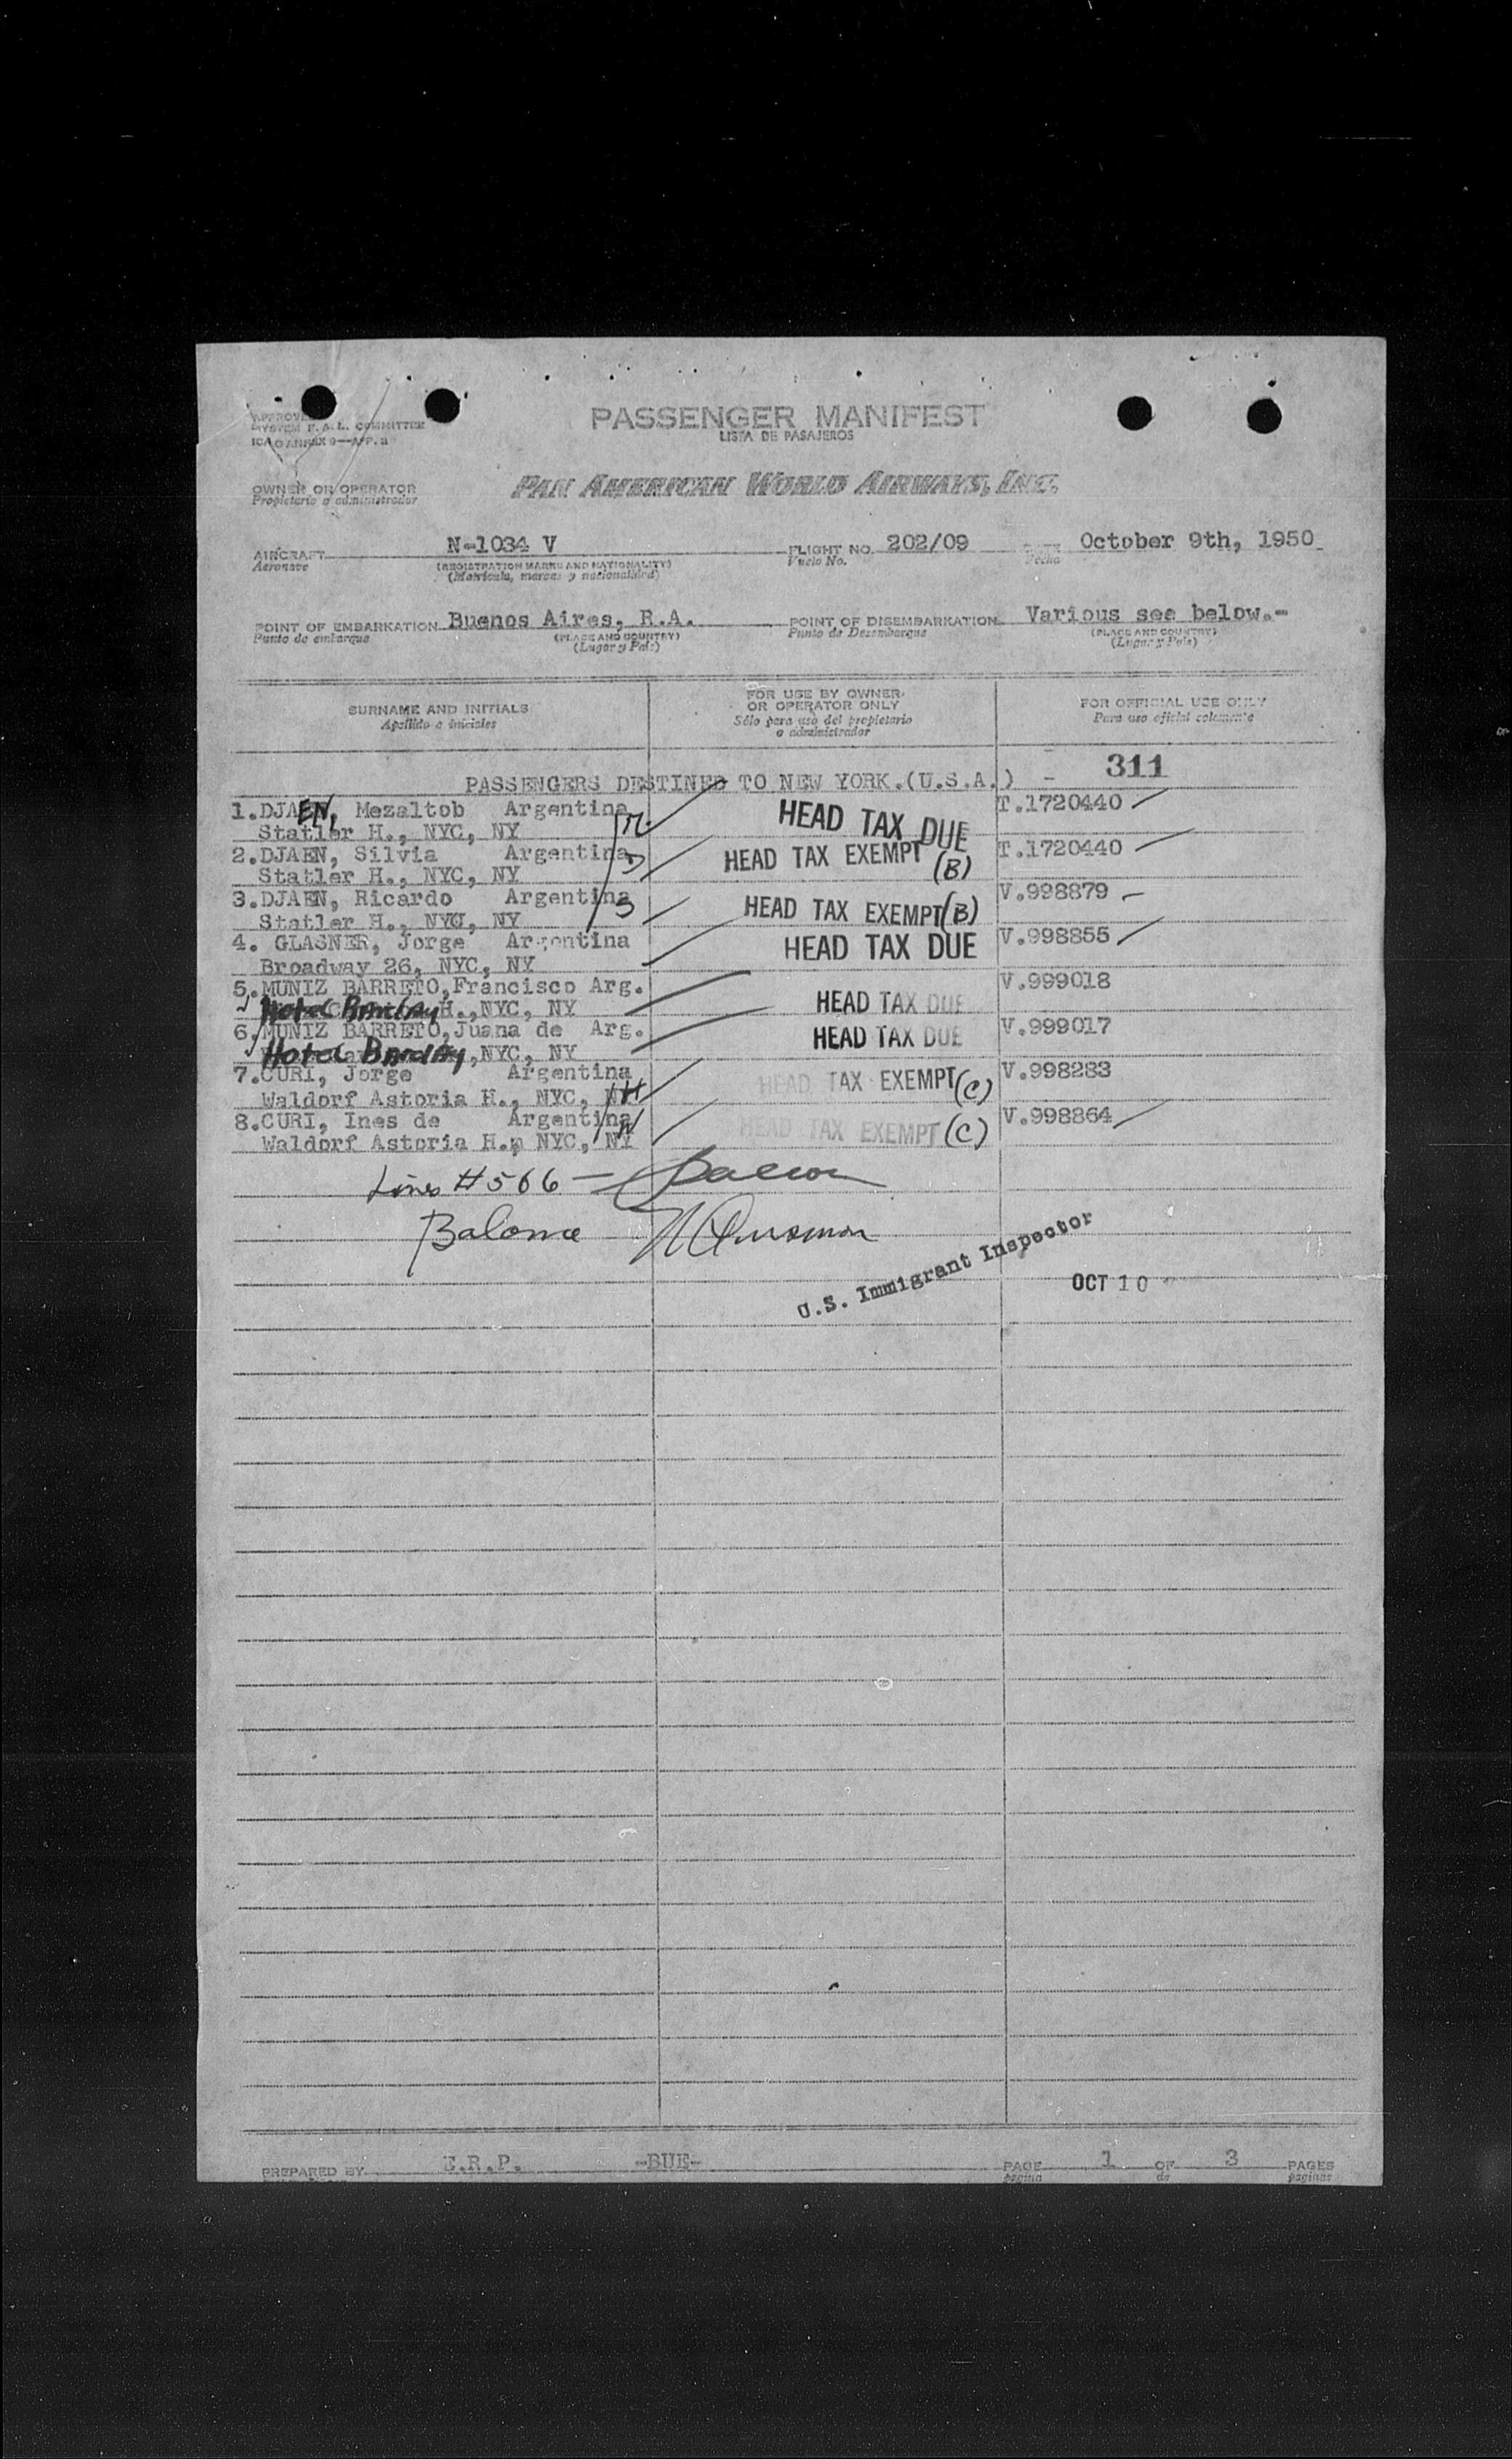 APPROVED
SYSTEM F.A.L. COMMITTEE
ICAO ANNEX 9—APP. 2
PASSENGER MANIFEST
LISTA DE PASAJEROS
OWNER OR OPERATOR
Propietario o administrador
PAN AMERICAN WORLD AIRWAYS, INC.
AIRCRAFT N-1034 V FLIGHT NO. 202/09 October 9th, 1950
Aeronave (REGISTRATION MARKS AND NATIONALITY) Vuelo No. Fecha
(Matrícula, marcas y nacionalidad)
POINT OF EMBARKATION Buenos Aires, R.A. POINT OF DISEMBARKATION Various see below.-
Punto de embarque (PLACE AND COUNTRY) Punto de Desembarque (PLACE AND COUNTRY)
(Lugar y País) (Lugar y País)
SURNAME AND INITIALS FOR USE BY OWNER OR OPERATOR ONLY FOR OFFICIAL USE ONLY
Apellido e iniciales Sólo para uso del propietario o administrador Para uso oficial solamente
311
PASSENGERS DESTINED TO NEW YORK.(U.S.A.) -
1.DJAEN, Mezaltob Argentina HEAD TAX DUE T.1720440
Statler H., NYC, NY
2.DJAEN, Silvia Argentina HEAD TAX EXEMPT (B) T.1720440
Statler H., NYC, NY
3.DJAEN, Ricardo Argentina HEAD TAX EXEMPT (B) V.998879
Statler H., NYC, NY
4. GLASNER, Jorge Argentina HEAD TAX DUE V.998855
Broadway 26, NYC, NY
5.MUNIZ BARRETO,Francisco Arg. V.999018
Hotel Barclay H.,NYC, NY HEAD TAX DUE
6.MUNIZ BARRETO,Juana de Arg. HEAD TAX DUE V.999017
Hotel Barclay,NYC, NY
7.CURI, Jorge Argentina HEAD TAX EXEMPT (C) V.998283
Waldorf Astoria H., NYC, NY
8.CURI, Ines de Argentina HEAD TAX EXEMPT (C) V.998864
Waldorf Astoria H., NYC, NY
Lines # 5 6 6 —
U.S. Immigrant Inspector
OCT 10
PREPARED BY E.R.P. -BUE- PAGE 1 OF 3 PAGES
página de páginas